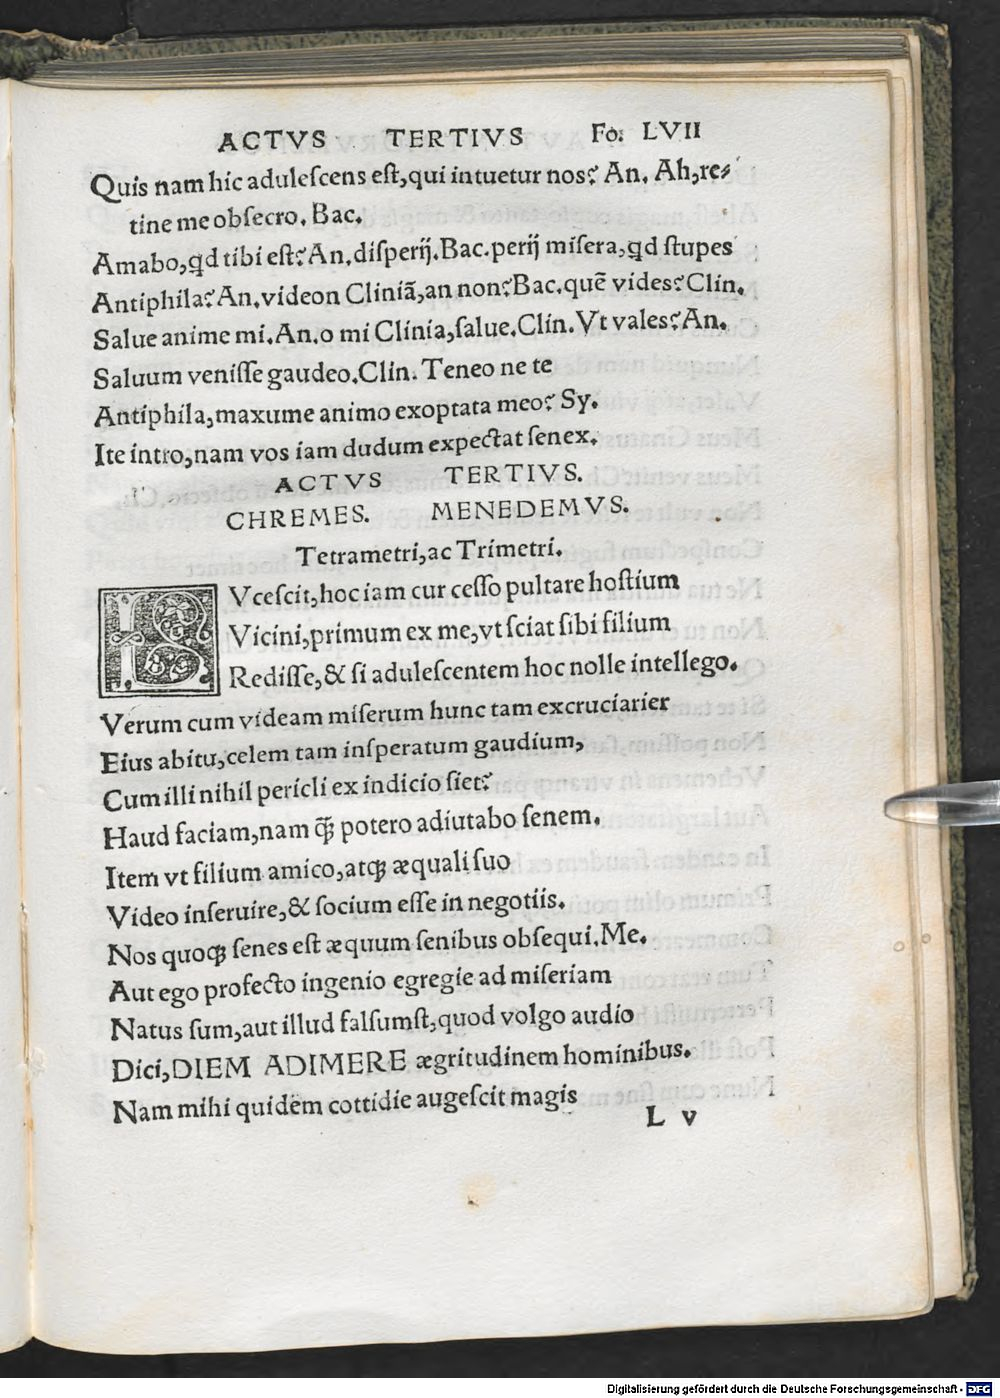 ACTVS TERTIVS Fo: LVII
Quis nam hic adulescens eſt,qui intuetur nos? An. Ah,re-
tine me obſecro. Bac.
Amabo,qd tibi eſt? An.diſperij.Bac.perij miſera,qd ſtupes
Antiphila? An.videon Cliniã,an non? Bac.quẽ vides? Clin.
Salue anime mi.An.o mi Clinia,ſalue.Clin.Vt vales? An.
Saluum veniſſe gaudeo.Clin. Teneo ne te
Antiphila,maxume animo exoptata meo? Sy.
Ite intro,nam vos iam dudum expectat ſenex.
ACTVS TERTIVS.
CHREMES. MENEDEMVS.
Tetrametri,ac Trimetri.
LVceſcit,hoc iam cur ceſſo pultare hoſtium
Vicini,primum ex me,vt ſciat ſibi filium
Rediſſe,& ſi aduleſcentem hoc nolle intellego.
Verum cum videam miſerum hunc tam excruciarier
Eius abitu,celem tam inſperatum gaudium,
Cum illi nihil pericli ex indicio ſiet?
Haud faciam,nam ꝙ̃ potero adiutabo ſenem.
Item vt filium amico,atqꝫ æquali ſuo
Video inſeruire,& ſocium eſſe in negotiis.
Nos quoqꝫ ſenes eſt æquum ſenibus obſequi.Me.
Aut ego profecto ingenio egregie ad miſeriam
Natus ſum,aut illud falſumſt,quod volgo audio
Dici,DIEM ADIMERE ægritudinem hominibus.
Nam mihi quidem cottidie augeſcit magis
L v
Digitalisierung gefördert durch die Deutsche Forschungsgemeinschaft - DFG